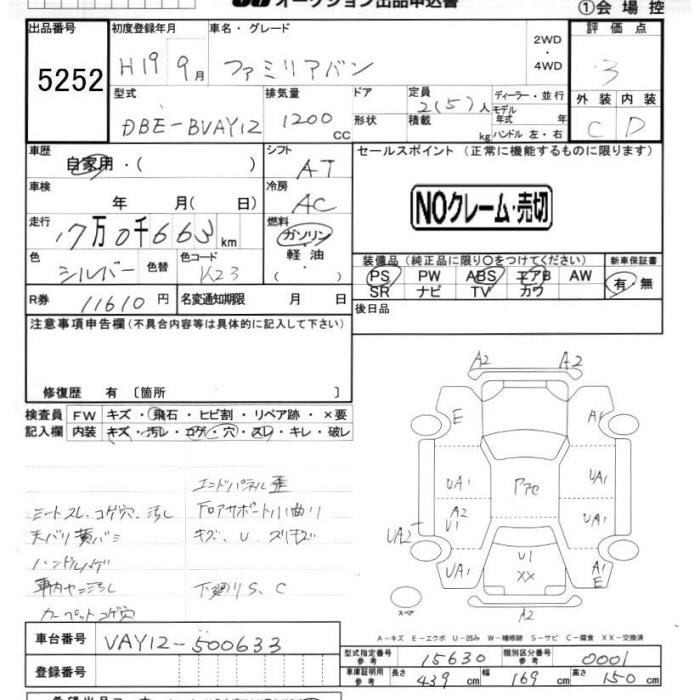 オークション出品申込書
①会場控
出品番号 初度登録年月 車名・グレード 2WD・4WD 評価点
5252 H19 9月 ファミリアバン 3
型式 排気量 ドア 定員 ディーラー・並行 外装 内装
DBE-BVAY12 1200cc 2(5)人 モデル年式 年 C D
形状 積載 kg ハンドル 左・右
車歴 自家用・( ) シフト AT セールスポイント (正常に機能するものに限ります)
車検 年 月( 日) 冷房 AC
NOクレーム・売切
走行 17万0千663km 燃料 ガソリン・軽油・( )
色 シルバー 色替 色コード K23
装備品(純正品に限り○をつけてください) 新車保証書
PS PW ABS エアB AW 有・無
SR ナビ TV カワ
R券 11610円 名変通知期限 月 日 後日品
注意事項申告欄(不具合内容等は具体的に記入して下さい)
修復歴 有 〔箇所 〕
検査員 FW キズ・飛石・ヒビ割・リペア跡・×要
記入欄 内装 キズ・汚レ・コゲ・穴・スレ・キレ・破レ
エンドパネル歪
シートスレ、コゲ穴、汚し コアサポート小曲り
天バリ黄バミ キズ、U、スリキズ
ハンドルハゲ
車内ヤニ汚し 下廻りS、C
カーペットコゲ穴
A2 A2
E A1
UA1 アアC UA1
A2 U1 UA1
UA2
U1
UA1 XX A1 E
スペア A2
A-キズ E-エクボ U-凹み W-補修跡 S-サビ C-腐食 XX-交換済
車台番号 VAY12-500633
型式指定番号 参考 15630 類別区分番号 参考 0001
登録番号
車庫証明用 参考 長さ 439cm 幅 169cm 高さ 150cm
希望出品コーナー